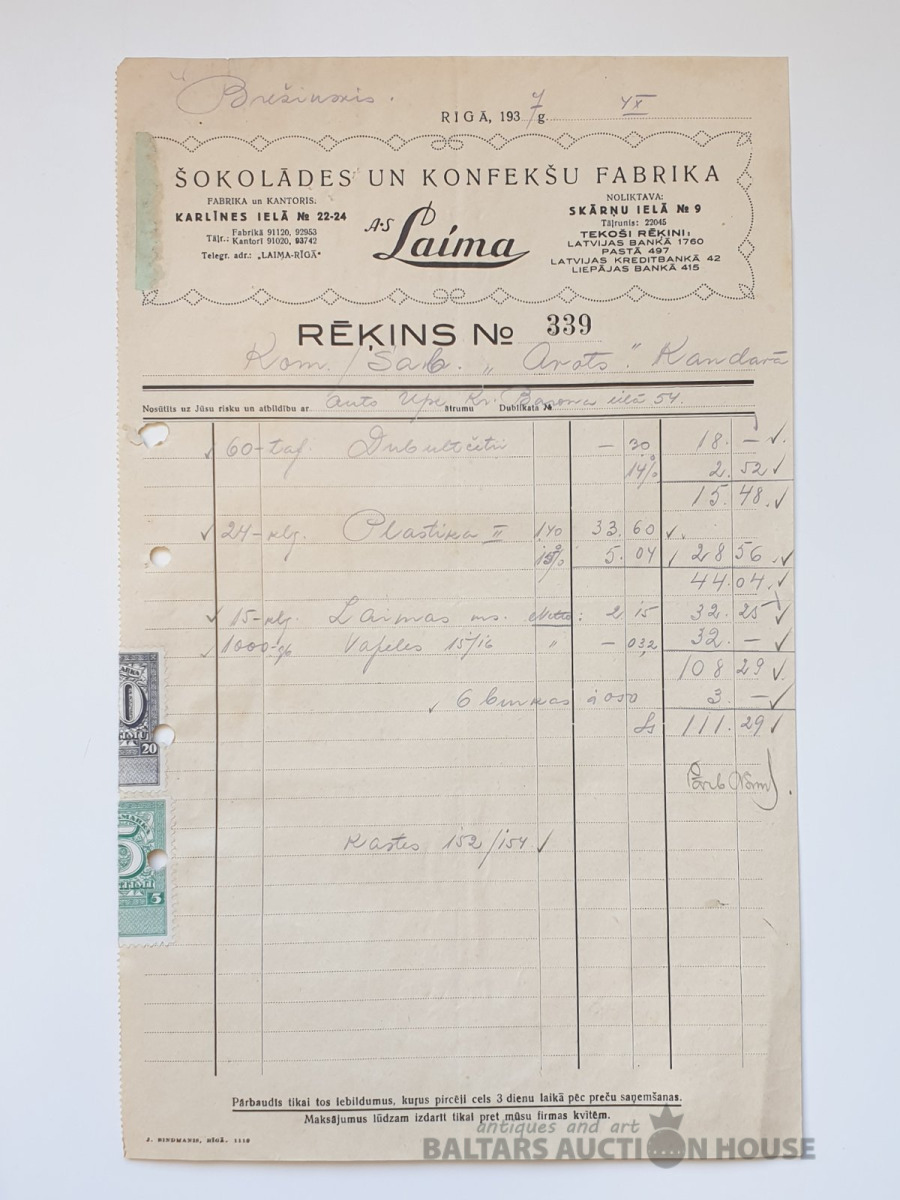 Brešinskis.
RĪGĀ, 1937 g. 4 X
ŠOKOLĀDES UN KONFEKŠU FABRIKA
FABRIKA un KANTORIS:
KARLĪNES IELĀ № 22-24
Tāļr.: Fabrikā 91120, 92953
Kantorī 91020, 93742
Telegr. adr.: „LAIMA-RĪGĀ"
A-S Laima
NOLIKTAVA:
SKĀRŅU IELĀ № 9
Tāļrunis: 22045
TEKOŠI RĒĶINI:
LATVIJAS BANKĀ 1760
PASTĀ 497
LATVIJAS KREDITBANKĀ 42
LIEPĀJAS BANKĀ 415
RĒĶINS № 339
Kom./Sab. „Arots". Kandavā
Nosūtīts uz Jūsu risku un atbildību ar auto Upe, Kr. Barona ielā 54. ātrumu Dublikāta №
60-taf. Dubultčetri — 30 18. —
14% 2. 52
15. 48
24-klg. Plastika II 1,40 33. 60
15% 5. 04 28 56
44. 04
15-klg. Laimas ms. Netto: 2 15 32. 25
1000-gb Vafeles 15/16 " — 032 32. —
108 29
6 bunkas à 050 3. —
Ls 111. 29
Kastes 152/154
20
5
Pārbaudīs tikai tos iebildumus, kuŗus pircēji cels 3 dienu laikā pēc preču saņemšanas.
Maksājumus lūdzam izdarīt tikai pret mūsu firmas kvitēm.
J. RINDMANIS, RĪGĀ. 1118
antiques and art
BALTARS AUCTION HOUSE